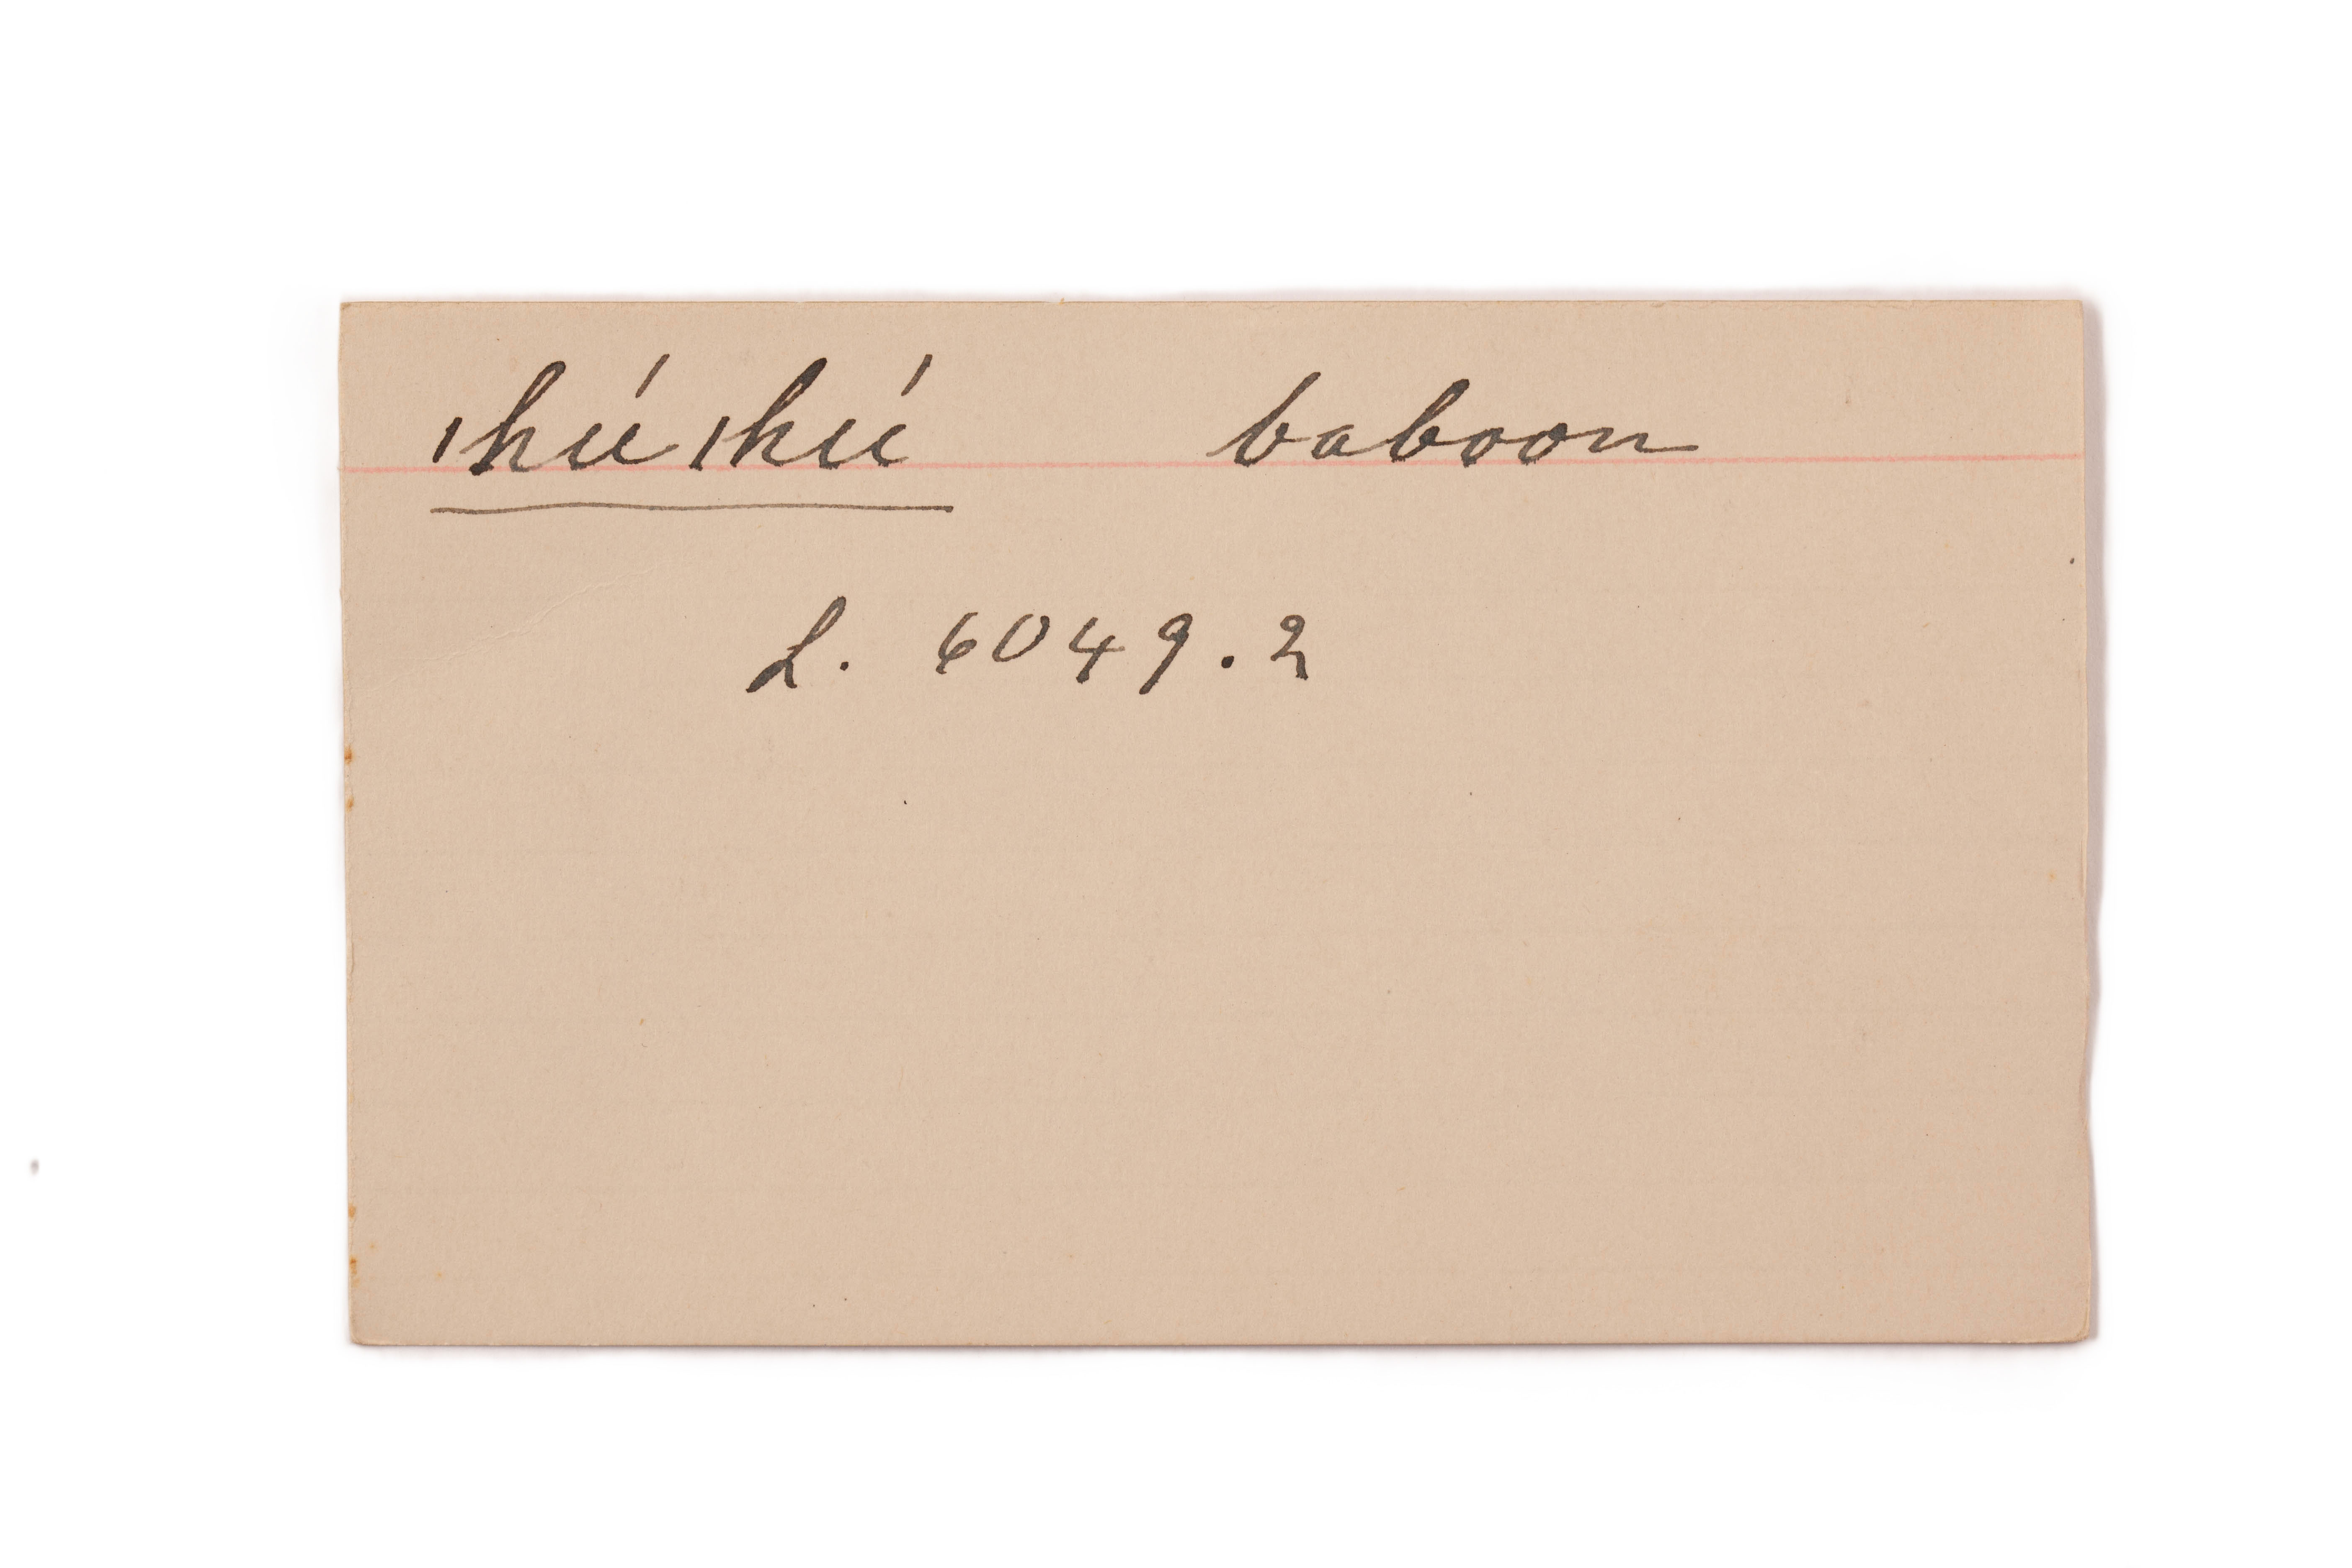 ǀhúǀhú baboon
L. 6049.2